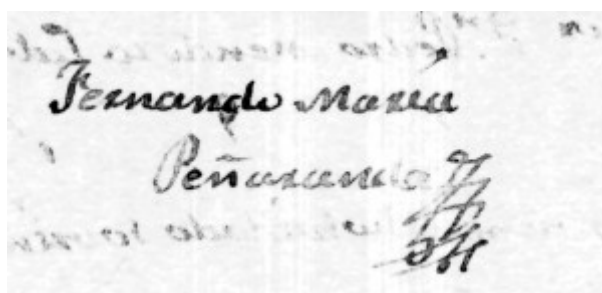 Fernando María
Peñaranda